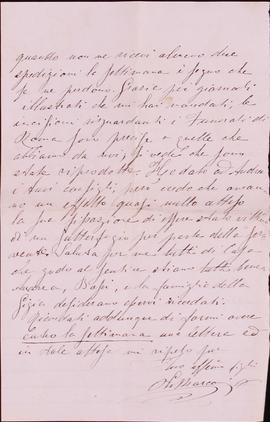 quando non ne ricevi almeno due
spedizioni la settimana è segno che
se ne perdono. Grazie pei giornali
illustrati che mi hai mandati, le
incisioni risguardanti i Funerali di
Roma sono precise a quelle che
abbiamo da noi, si vede che sono
state riprodotte. Ho dato ad Andrea
i tuoi consigli, però credo che avran
no un effetto quasi nullo atteso
la sua posizione di essere stato
di un sutterfugio per parte della
Saluta per me tutti di Casa
che godo al sentire stiano tutti bene
Andrea, Papà, e la famiglia della
Gigia desiderano esservi ricordati.
Ricordati addunque di farmi avere
entro la settimana una lettera ed
in tale attesa mi ripeto pel
tuo affmo figlio
Marco